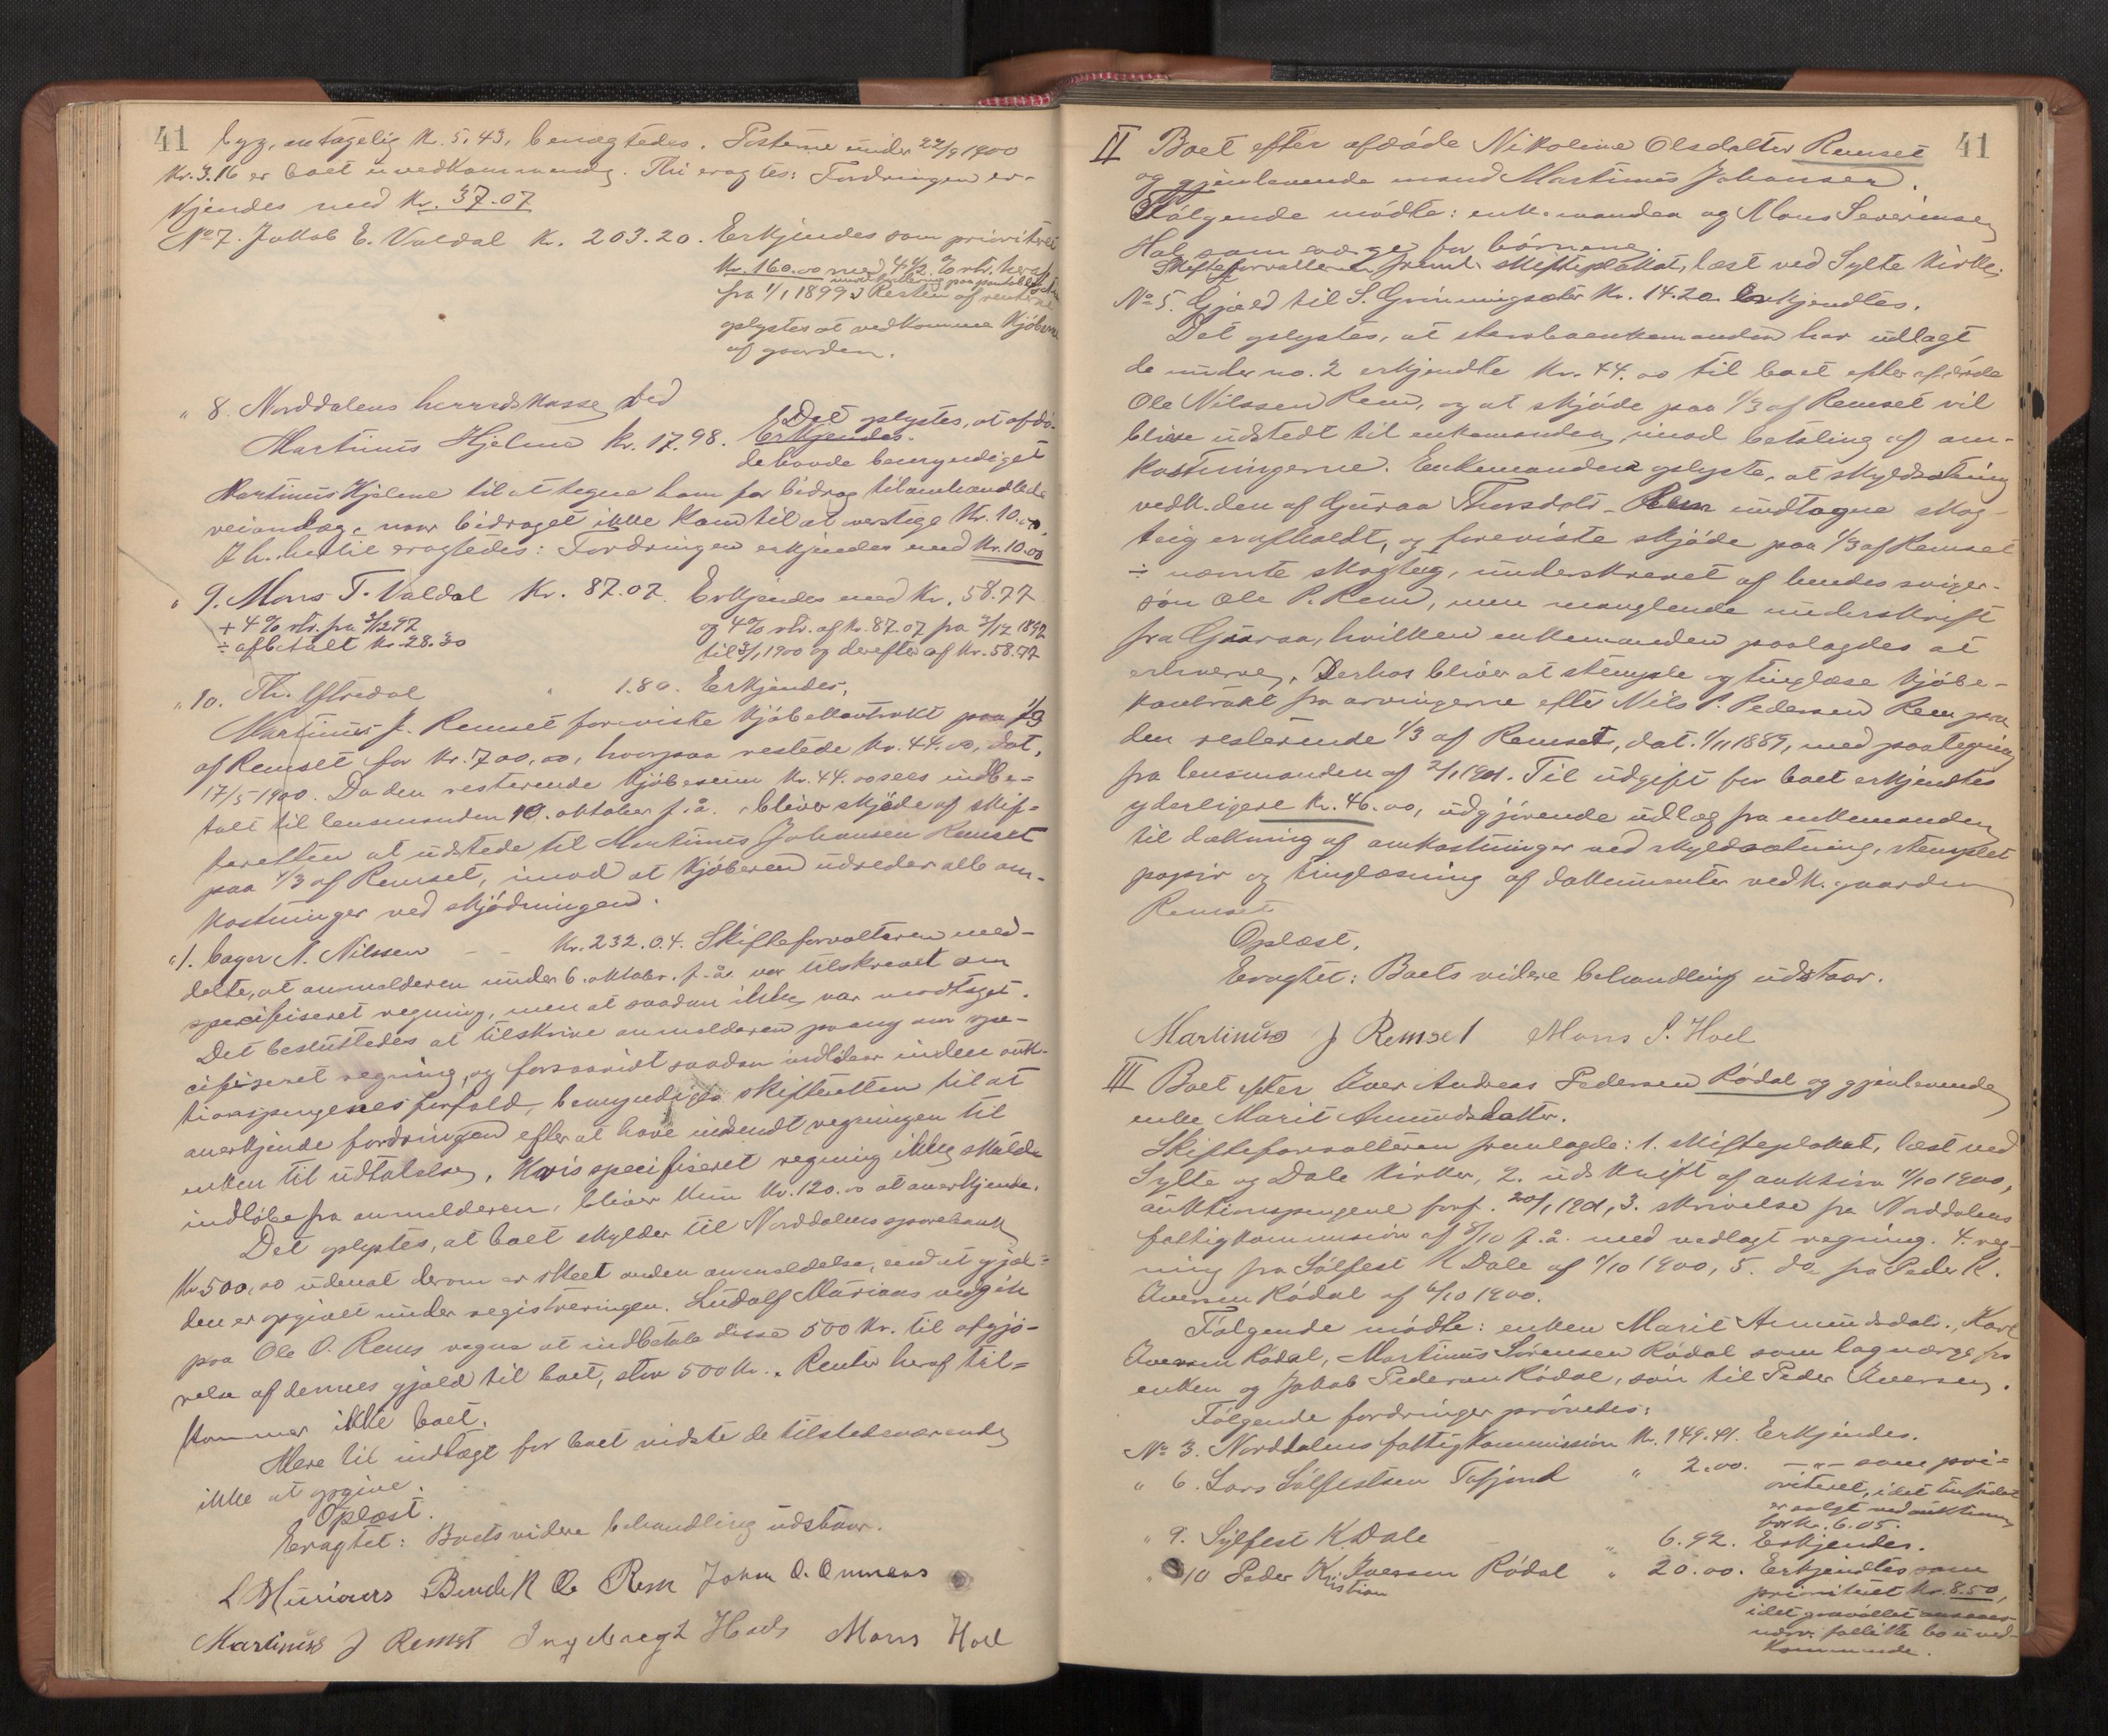 41
byg, antagelig Kr. 5.43, benægtedes. Posterne under 22/9 1900
Kr. 3.16 er boet uvedkommende. Thi eragtes: Fordringen er-
kjendes med Kr. 37.07
No 7. Jakob E. Valdal Kr. 203.20. Erkjendes som prioriteret
Kr. 160.00 med 4 1/2 % rtr. heraf
fra 1/1 1899. Resten af renterne
oplystes at vedkomme kjøberen
af gaarden.
" 8. Norddalens herredskasse ved
Martinus Hjelme Kr. 17.98. Erkjendes. Det oplystes, at afdø-
de havde bemyndiget
Martinus Hjelme til at tegne ham for bidrag til omhandlede
veianlæg, naar bidraget ikke kom til at overstige Kr. 10.00.
I h. hertil eragtedes: Fordringen erkjendes med Kr. 10.00
" 9. Mons T. Valdal Kr. 87.07. Erkjendes med Kr. 58.77
+ 4 % rtr. fra 3/12 97 og 4 % rtr. af Kr. 87.07 fra 3/12 1897
÷ afbetalt Kr. 28.30 til 3/1 1900 og derefter af Kr. 58.77
" 10. Th. Ytredal " 1.80. Erkjendes.
Martinus J. Remset foreviste kjøbekontrakt paa 1/3
af Remset for Kr. 700,00, hvorpaa restede Kr. 44.00, dat.
17/5 1900. Da den resterende kjøbesum Kr. 44.00 sees indbe-
talt til lensmanden 10. oktober f. å. bliver skjøde af skif-
teretten at udstede til Martinus Johansen Remset
paa 1/3 af Remset, imod at kjøberen udreder alle om-
kostninger ved skjødningen.
" 1. bager N. Nilssen - - Kr. 232.04. Skifteforvalteren med-
delte, at anmelderen under 6. oktober f. å. var tilskrevet om
specifiseret regning, men at saadan ikke var modtaget.
Det besluttedes at tilskrive anmelderen paany om spe-
cifiseret regning, og forsaavidt saadan indløber inden auk-
tionspengenes forfald, bemyndiges skifteretten til at
anerkjende fordringen efter at have indsendt regningen til
enken til udtalelse. Hvis specifiseret regning ikke skulde
indløbe fra anmelderen, bliver kun Kr. 120.00 at anerkjende.
Det oplystes, at boet skylder til Norddalens sparebank
Kr. 500,00 uden at derom er skeet anden anmeldelse, end at gjæl-
den er opgivet under registreringen. Ludolf Muriaas vedgik
paa Ole O. Rems vegne at indbetale disse 500 Kr. til afgjø-
relse af dennes gjæld til boet, stor 500 Kr. Renter heraf til-
kommer ikke boet.
Mere til indtægt for boet vidste de tilstedeværende
ikke at opgive.
Oplæst.
Eragtet: Boets videre behandling udstaar.
L Muriaas Bendik O. Rem John O. Omenaas
Martinus J Remset Ingebregt Hoels Mons Hoel
41
II Boet efter afdøde Nikoline Olsdatter Remset
og gjenlevende mand Martinus Johansen.
Følgende mødte: enkemanden og Mons Severinsen
Hol som værge for børnene.
Skifteforvalteren freml. skifteplakat, læst ved Sylte Kirke.
No 5. Gjæld til S. Grønningsæter Kr. 14.20. Erkjendtes.
Det oplystes, at enkemanden har udlagt
de under no. 2 erkjendte Kr. 44.00 til boet efter afdøde
Ole Nilssen Rem, og at skjøde paa 1/3 af Remset vil
blive udstedt til enkemanden imod betaling af om-
kostningerne. Enkemanden oplyste, at skyldsætning
vedk. den af Guraa Thorsdatr. Rem undtagne skog-
teig er afholdt, og foreviste skjøde paa 1/3 af Remset
÷ nævnte skogteig, underskrevet af hendes sviger-
søn Ole P. Rem, men manglende underskrift
fra Guraa, hvilken enkemanden paalagdes at
erhverve. Derhos bliver at stemple og tinglæse kjøbe-
kontrakt fra arvingerne efter Nils P. Pedersen Rem paa
den resterende 1/3 af Remset, dat. 1/11 1889, med paategning
fra lensmanden af 2/1 1901. Til udgift for boet erkjendtes
yderligere Kr. 46.00, udgjørende udlæg fra enkemanden
til dækning af omkostninger ved skyldsætning, stemplet
papir og tinglæsning af dokumenter vedk. gaarden
Remset
Oplæst.
Eragtet: Boets videre behandling udstaar.
Martinus J Remset Mons S. Hoel
III Boet efter Iver Andreas Pedersen Rødal og gjenlevende
enke Marit Amundsdatter.
Skifteforvalteren fremlagde: 1. skifteplakat, læst ved
Sylte og Dale Kirker, 2. udskrift af auktion 4/10 1900,
auktionspengene forf. 20/1 1901, 3. skrivelse fra Norddalens
fattigkommission af 8/10 f. å. med vedlagt regning. 4. reg-
ning fra Sølfest K Dale af 4/10 1900, 5. do fra Peder K.
Iversen Rødal af 4/10 1900.
Følgende mødte: enken Marit Amundsdatr., Karl
Iversen Rødal, Martinus Sørensen Rødal som lagværge for
enken og Jakob Pedersen Rødal, søn til Peder Iversen.
Følgende fordringer prøvedes:
No 3. Norddalens fattigkommission Kr. 149.41. Erkjendes.
" 6. Lars Sølfestsen Tafjord " 2.00. -"- som pri-
oriteret, idet
er solgt ved auktionen
for Kr. 6.05.
" 9. Sylfest K Dale " 6.92. Erkjendes.
" 10 Peder Kristian Iversen Rødal " 20.00. Erkjendtes som
prioriteret Kr. 8.50,
idet
bo uved-
kommende.